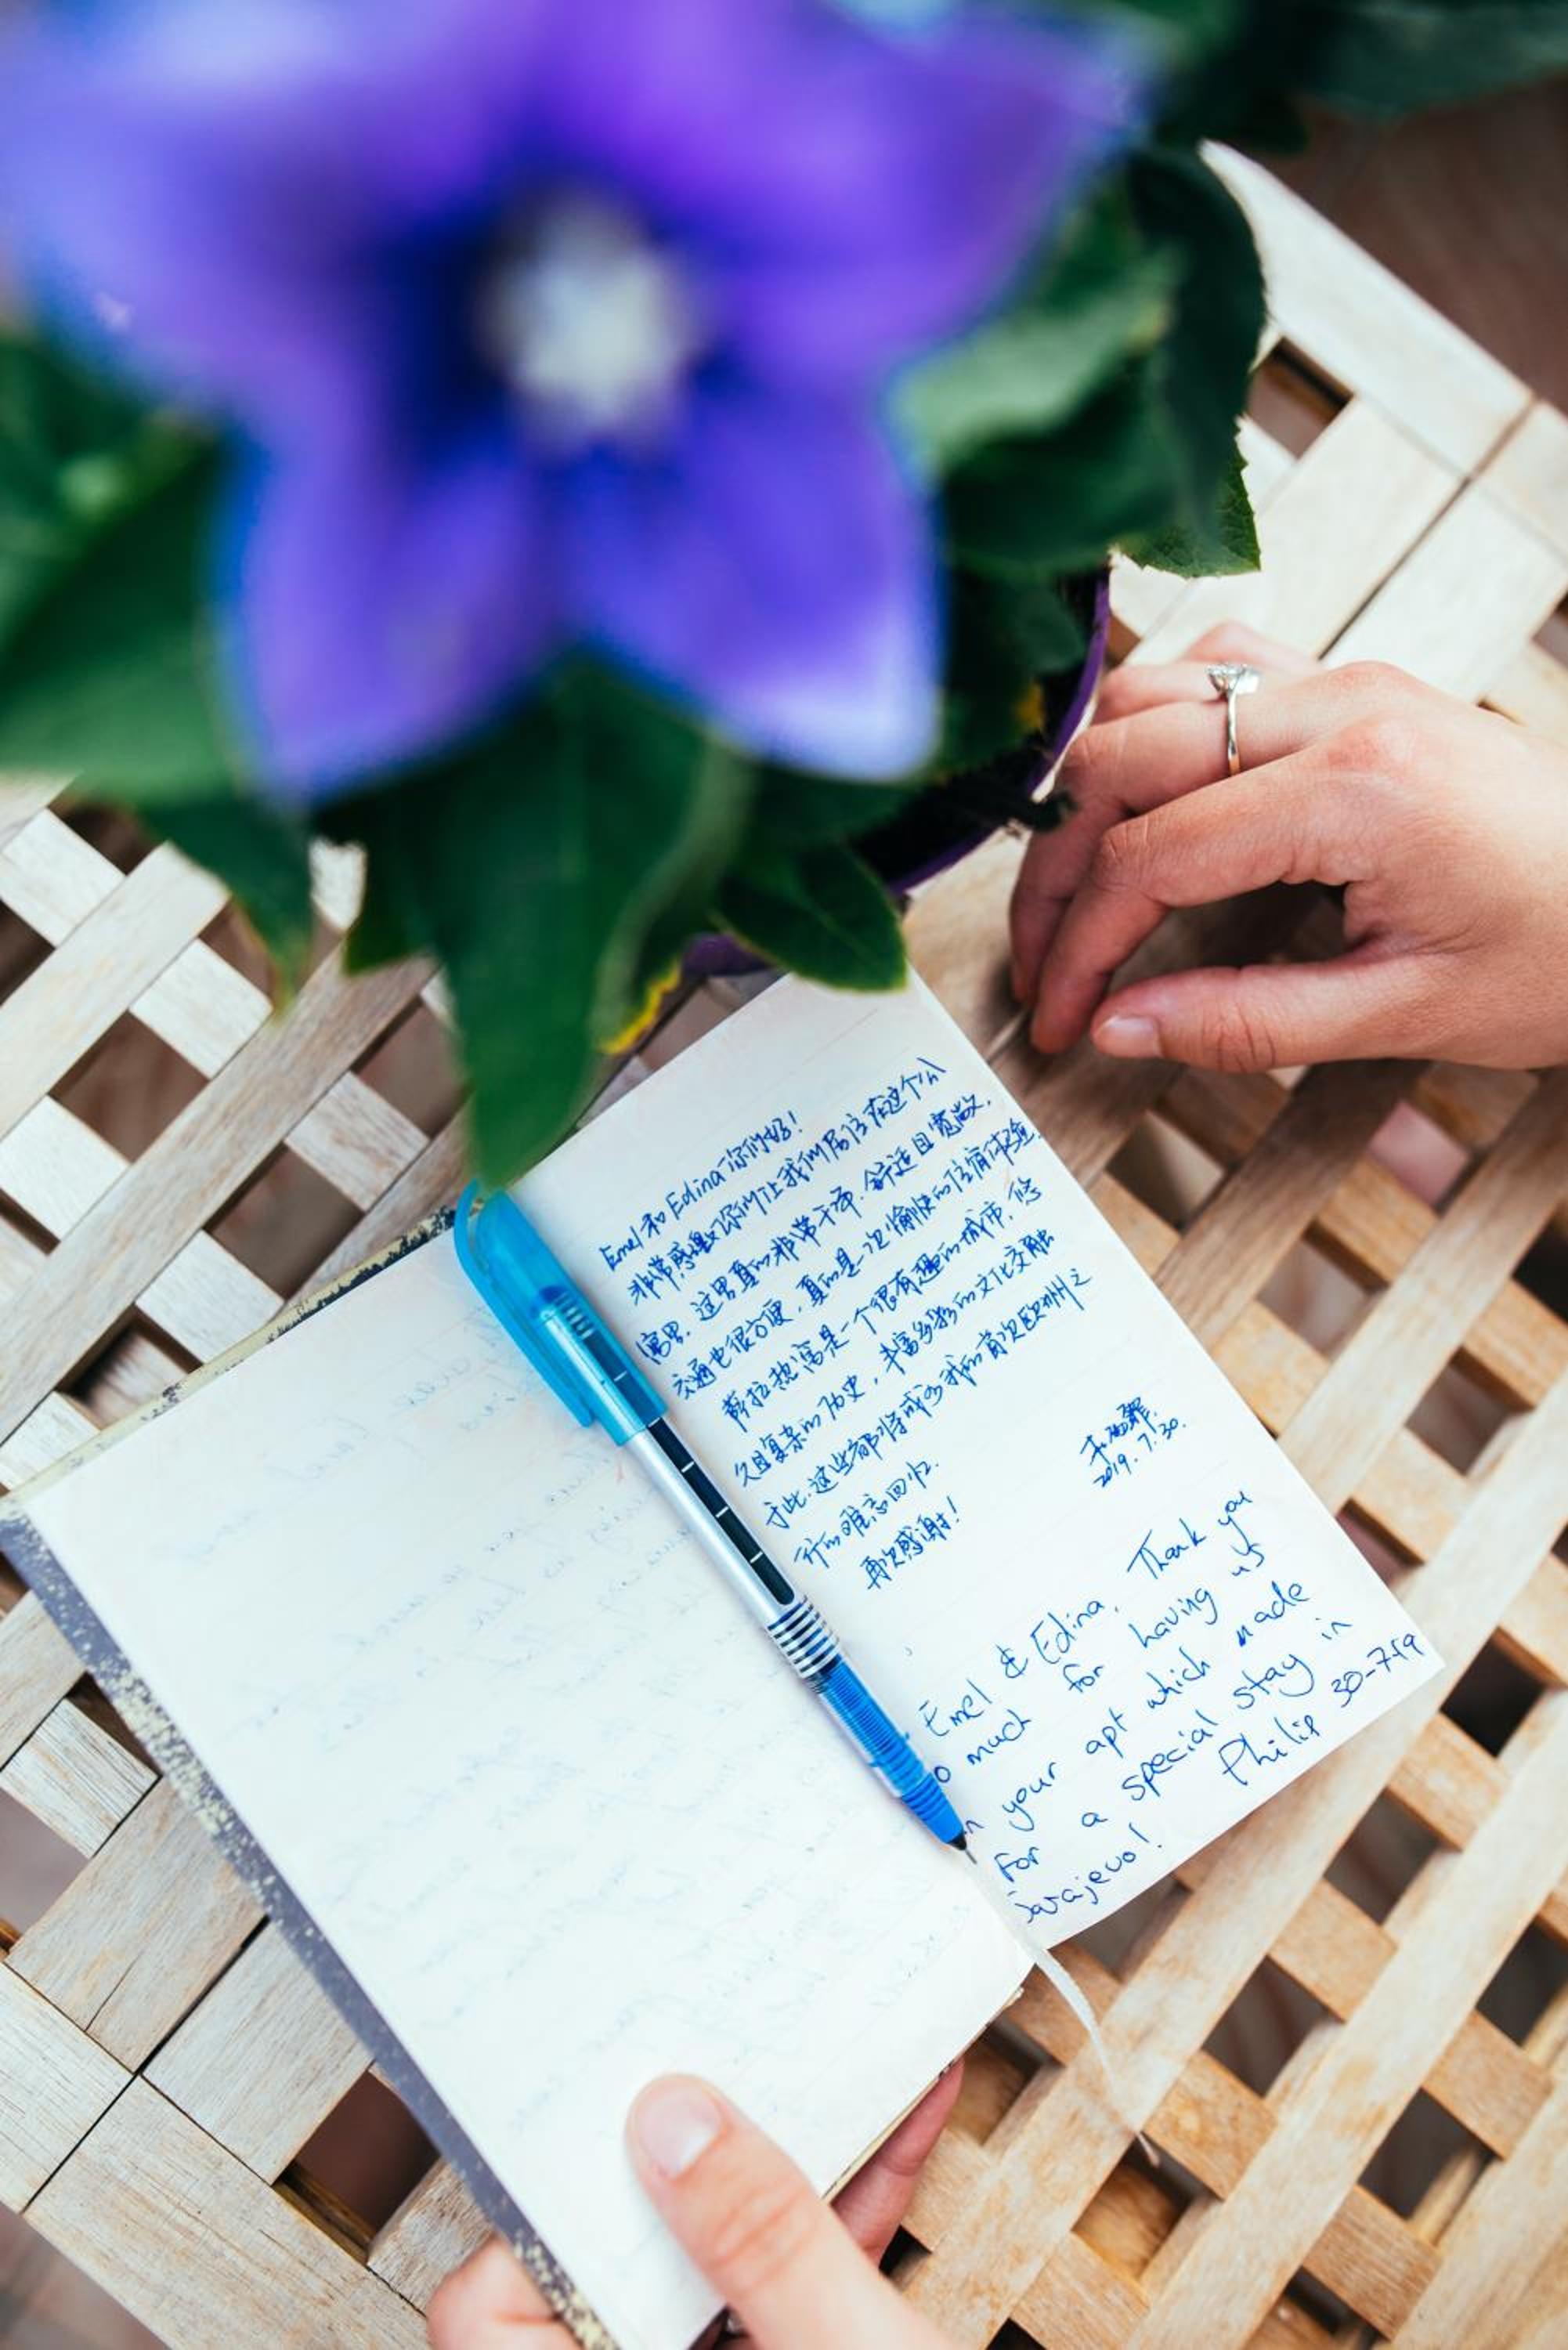 Emel 和 Edina 你们好!
非常感谢你们让我们居住在这个公
寓里. 这里真的非常干净. 舒适且宽敞.
交通也很方便, 真的是一次愉快的住宿体验.
萨拉热窝是一个很有趣的城市, 悠
久且复杂的历史, 丰富多彩的文化交融
于此. 这些都将成为我的首次欧洲之
行的难忘回忆.
再次感谢!
2019. 7. 30.
Emel & Edina, Thank you
much for having us
your apt which made
for a special stay in
Sarajevo! Philip 30-7-19